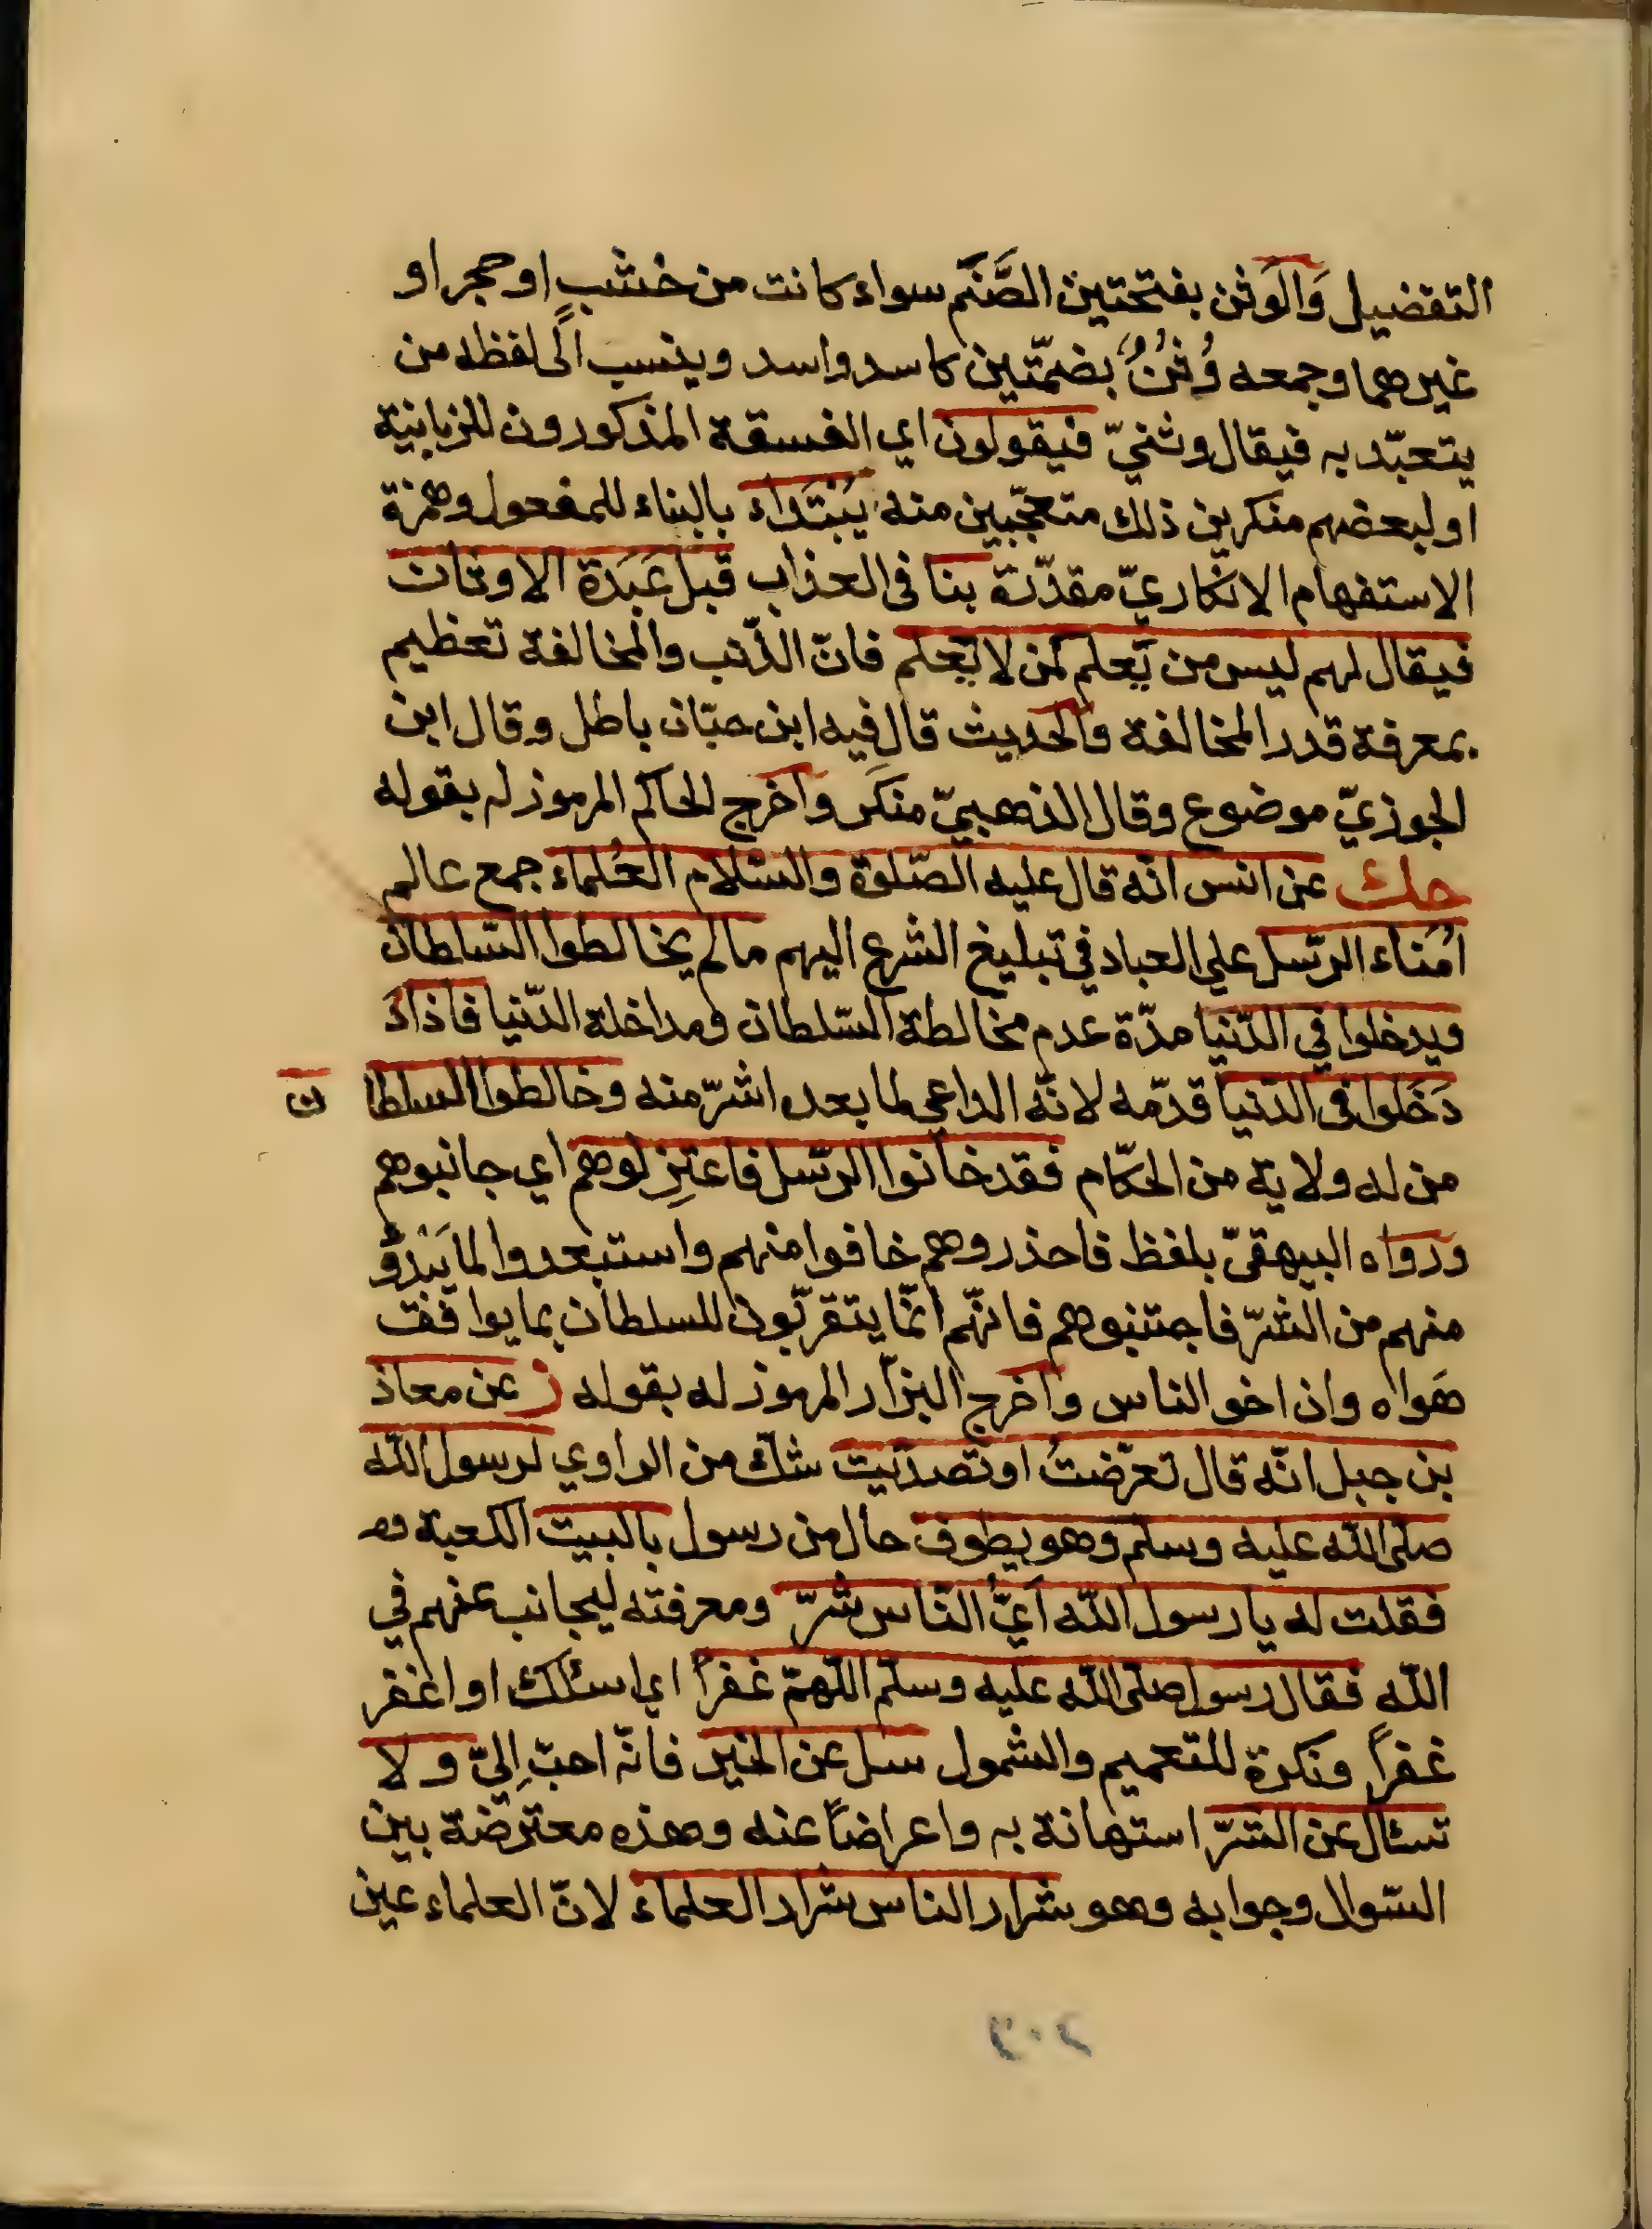 التفضيل وَالوَثن بفتحتين الصَّنَم سواء كانت من خشبٍ او حجر او
غيرهما وجمعه وُثُنٌ بضمّتين كاسد واسد وينسب الى لفظه من
يتعبّد به فيقال وثنيّ فيقولون اي الفسقة المذكورون للزبانية
او لبعضهم منكرين ذلك متعجّبين منه يُبْتَداء بالبناء للمفعول وهمزة
الاستفهام الانكاريّ مقدّرة بنا فى العذاب قبل عَبَدَة الاوثان
فيقال لهم ليس من يَعلم كمن لا يَعلم فانّ الذّنب والمخالفة تعظيم
بمعرفة قدر المخالفة والحديث قال فيه ابن حبّان باطل وقال ابن
الجوزيّ موضوع وقال الذهبيّ منكَر واخرج الحاكم المرموز له بقوله
حك عن انس انّه قال عليه الصّلوة والسّلام العُلماء جمع عالم
اُمَناء الرّسل علي العباد في تبليغ الشرع اليهم مالم يخالطوا السّلطان
ويدخلوا في الدّنيا مدّة عدم مخالطة السّلطان ومداخلة الدّنيا فاذا
دَخَلوا فى الدّنيا قدّمه لانّه الداعي لما بعده اشرّ منه وخالطوا السلطان
من له ولاية من الحكّام فقد خانوا الرّسل فاعتزِلوهم اي جانبوهم
ورواه البيهقيّ بلفظ فاحذروهم خافوا منهم واستبعدوا لما يَبْدُو
منهم من الشرّ فاجتنبوهم فانّهم انّما يتقرّبون للسلطان بما يوافق
هَواه وان اخو الناس واخرج البزّار المرموز له بقوله ز عن معاذ
بن جبل انّه قال تعرّضتُ او تصدّيت شكّ من الراوي لرسول الله
صلى الله عليه وسلم وهو يطوف حال من رسول بالبيت الكعبة
فقلت له يا رسول الله اَيُّ الناس شرّ ومعرفته ليجانب عنهم في
الله فقال رسول صلى الله عليه وسلم اللّهمّ غفراً اي اسئلك او اغفر
غفراً ونكرة للتعميم والشمول سل عن الخير فانّه احبّ اِليّ ولا
تسئال عن الشرّ استهانة به واعراضاً عنه وهذه معترضة بين
السّوال وجوابه وهو شرار الناس شرار العلماء لانّ العلماء عين